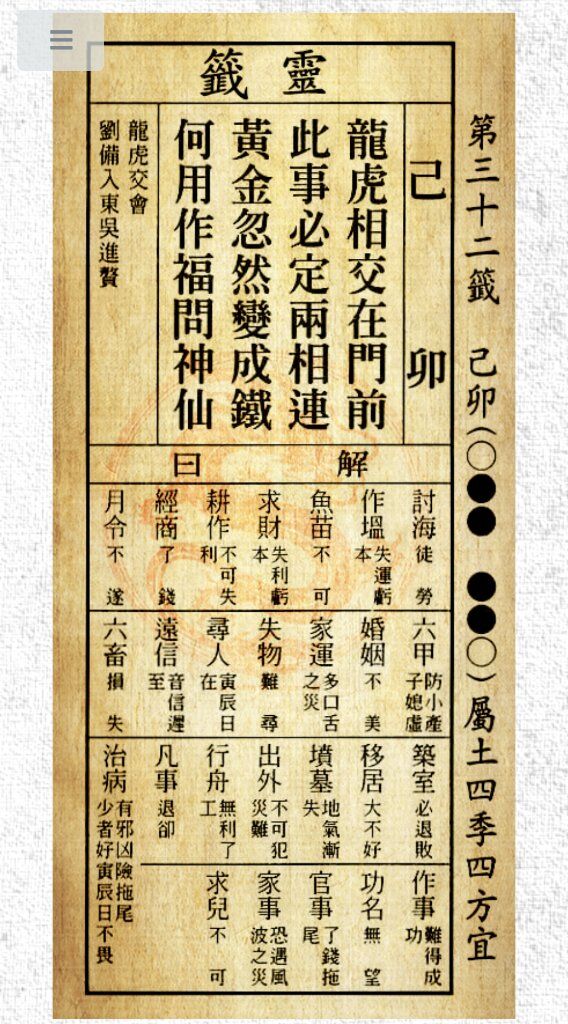 靈籤
第三十二籤 己卯(○●● ●●○)屬土四季四方宜
己卯
龍虎相交在門前
此事必定兩相連
黃金忽然變成鐵
何用作福問神仙
龍虎交會
劉備入東吳進贅
解曰
討海 徒勞
作塭 失運虧本
魚苗 不可
求財 失利虧本
耕作 不可失利
經商 了錢
月令 不遂
六甲 防小產子媳虛
婚姻 不美
家運 多口舌之災
失物 難尋
尋人 寅辰日在
遠信 音信遲至
六畜 損失
築室 必退敗
移居 大不好
墳墓 地氣漸失
出外 不可犯災難
行舟 無利了工
凡事 退卻
治病 有邪凶險拖尾少者好寅辰日不畏
作事 難得成功
功名 無望
官事 了錢拖尾
家事 恐遇風波之災
求兒 不可